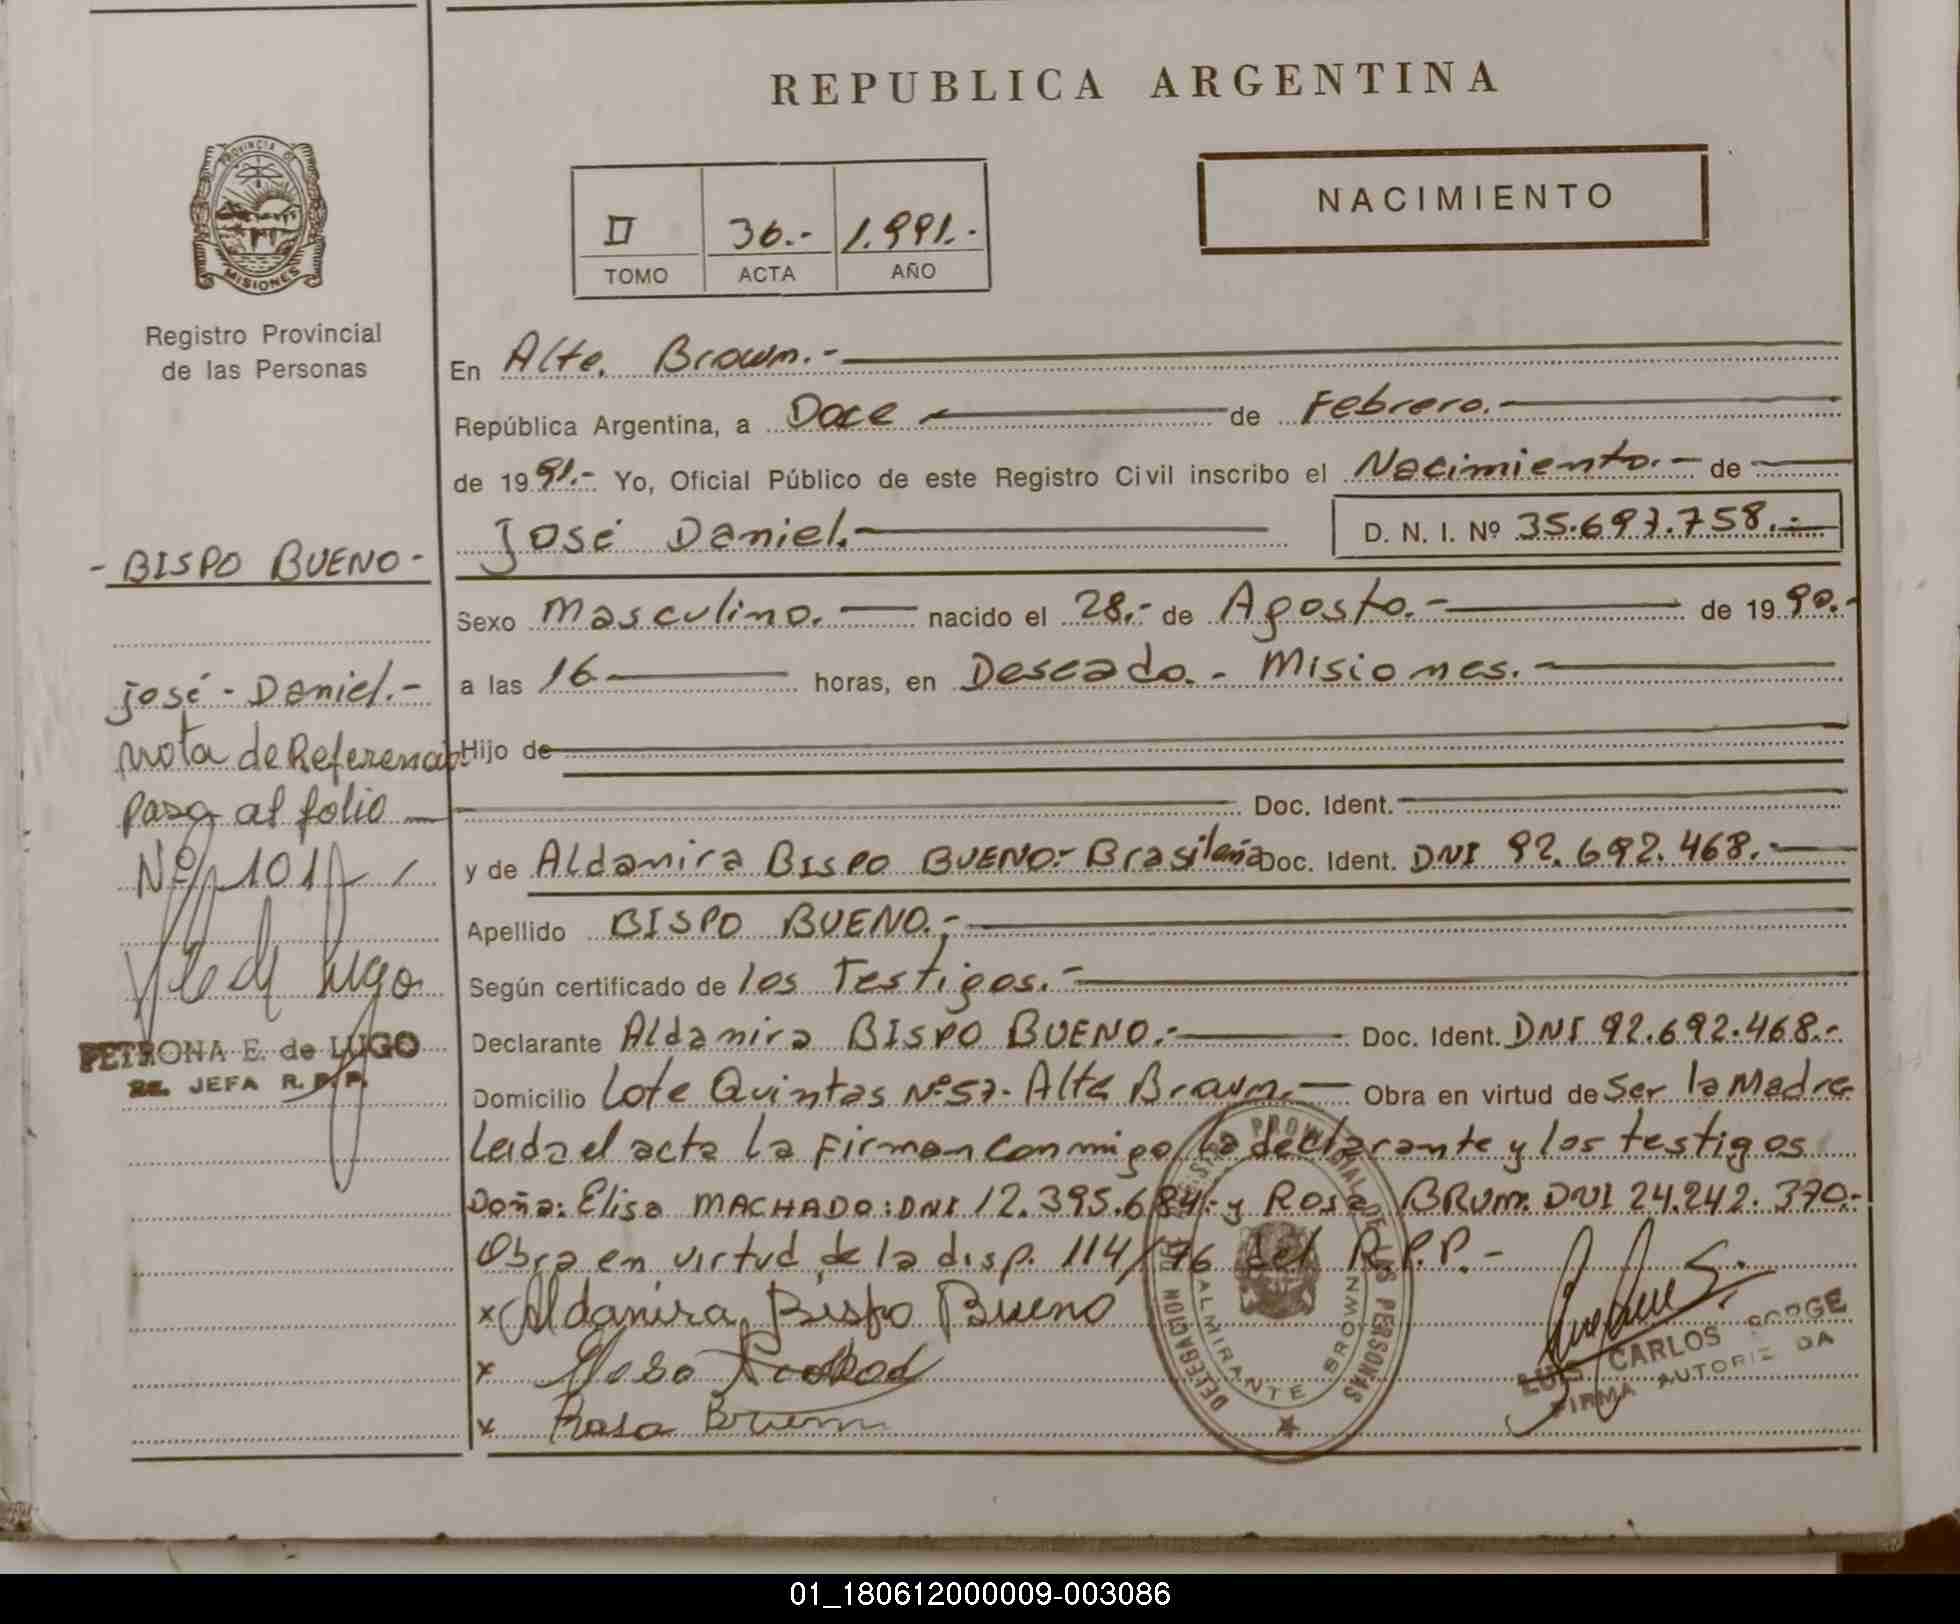 REPUBLICA ARGENTINA
PROVINCIA DE
MISIONES
Registro Provincial
de las Personas
II 36.- 1.991.-
TOMO ACTA AÑO
NACIMIENTO
En Alte. Brown.-
República Argentina, a Doce de Febrero.
de 1991.- Yo, Oficial Público de este Registro Civil inscribo el Nacimiento.- de
José Daniel. D. N. I. Nº 35.697.758.-
- BISPO BUENO -
Sexo Masculino. nacido el 28.- de Agosto.- de 1990.-
a las 16 horas, en Deseado. - Misiones.
José - Daniel.-
Hijo de
Nota de Referencia
Doc. Ident.
Pasa al folio
Nº 101
y de Aldamira BISPO BUENO.- Brasileña Doc. Ident. DNI 92.692.468.-
Apellido BISPO BUENO.-
Según certificado de los Testigos.-
Declarante Aldamira BISPO BUENO.- Doc. Ident. DNI 92.692.468.-
Lugo
PETRONA E. de LUGO
JEFA R. P. P.
Domicilio Lote Quintas Nº 57- Alte Brown.- Obra en virtud de Ser la Madre
Leida el acta La Firman conmigo La declarante y los testigos
Doña: Elisa MACHADO: DNI 12.395.684.- y Rosa BRUM. DNI 24.242.370.-
Obra en virtud de la disp. 114/76 del R.P.P.-
x Aldanira Bispo Bueno
x
x Rosa Brum
PROVINCIAL DE LAS PERSONAS
DELEGACION
ALMIRANTE BROWN
LUIS CARLOS JORGE
FIRMA AUTORIZADA
01_180612000009-003086